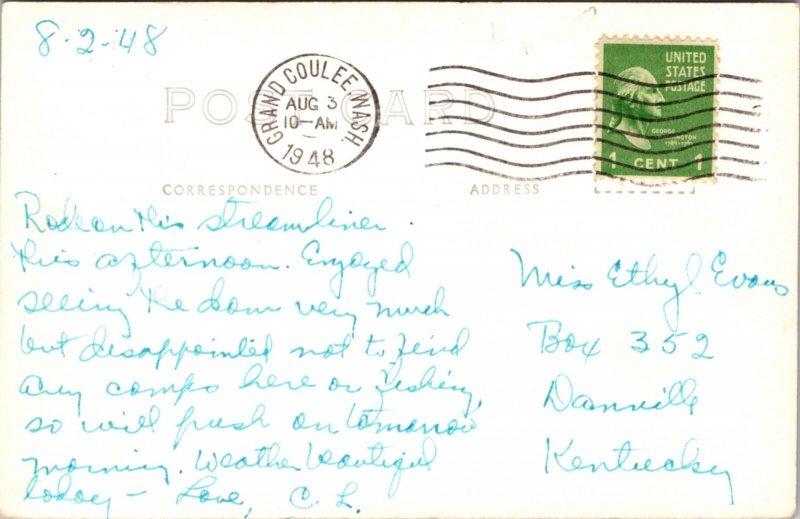 8-2-48
GRAND COULEE, WASH.
AUG 3
10-AM
1948
UNITED
STATES
POSTAGE
GEORGE
WASHINGTON
1789-1797
1 CENT 1
POST CARD
CORRESPONDENCE
ADDRESS
Rode on this streamliner
this afternoon. Enjoyed
seeing the dam very much
but disappointed not to find
any camps here or fishing,
so will push on tomorrow
morning. Weather beautiful
today — Love, C. L.
Miss Ethyl Evans
Box 352
Danville
Kentucky